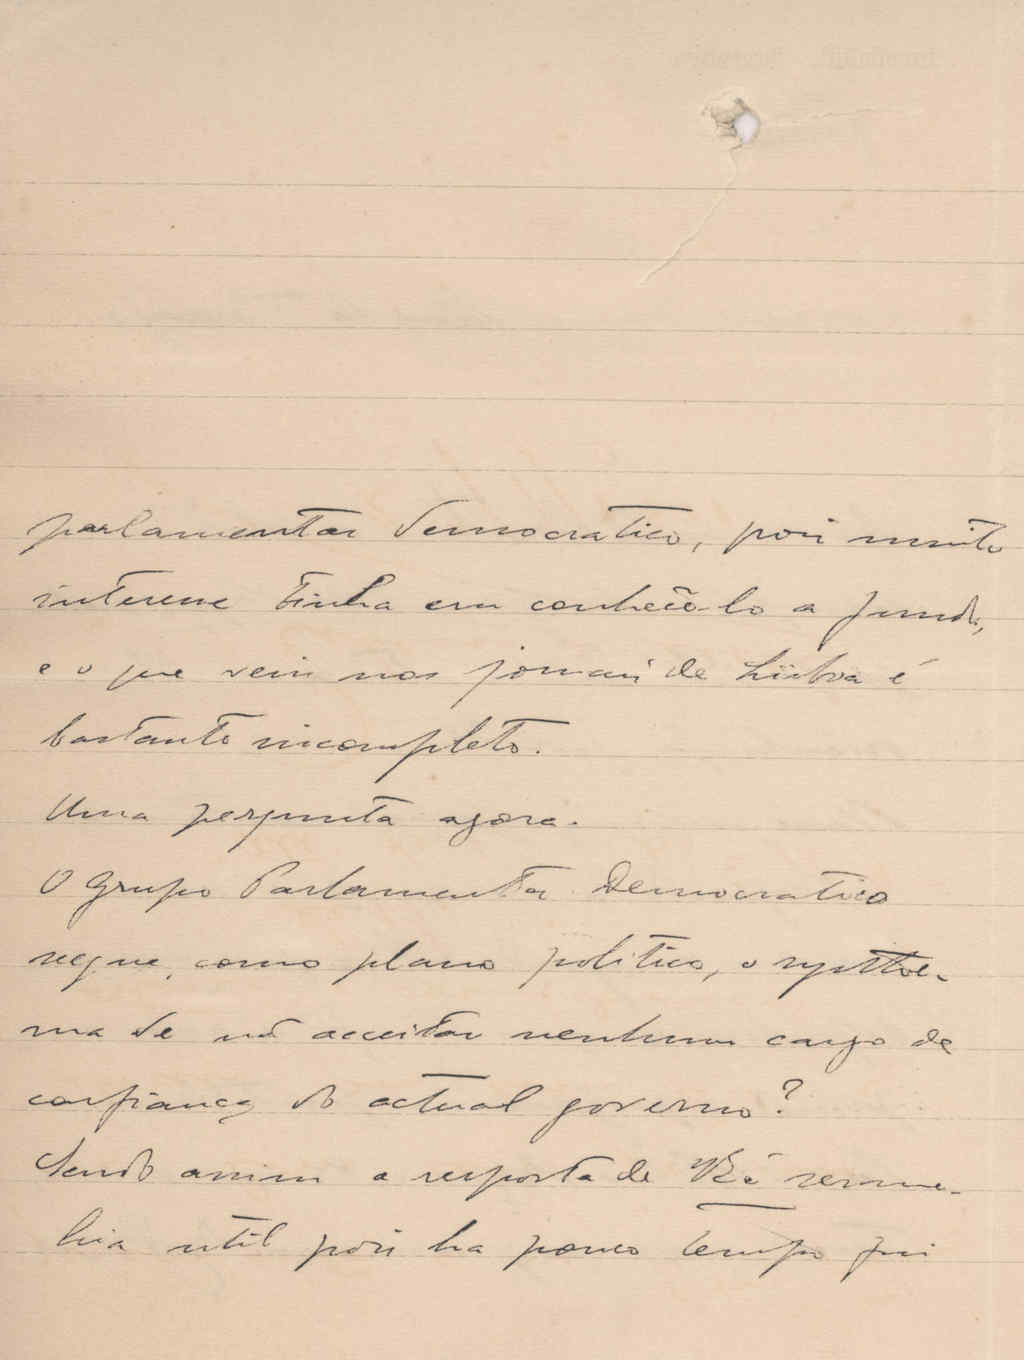 parlamentar democratico, pois muito
interesse tinha em conhecê-lo a fundo,
e o que vem nos jornais de Lisboa é
bastante incompleto.
Uma pergunta agora.
O Grupo Parlamentar Democratico
segue, como plano politico, o systhe-
ma de não acceitar nenhum cargo de
confiança do actual governo?
Sendo assim a resposta de V. Exª
util pois ha pouco tempo fui